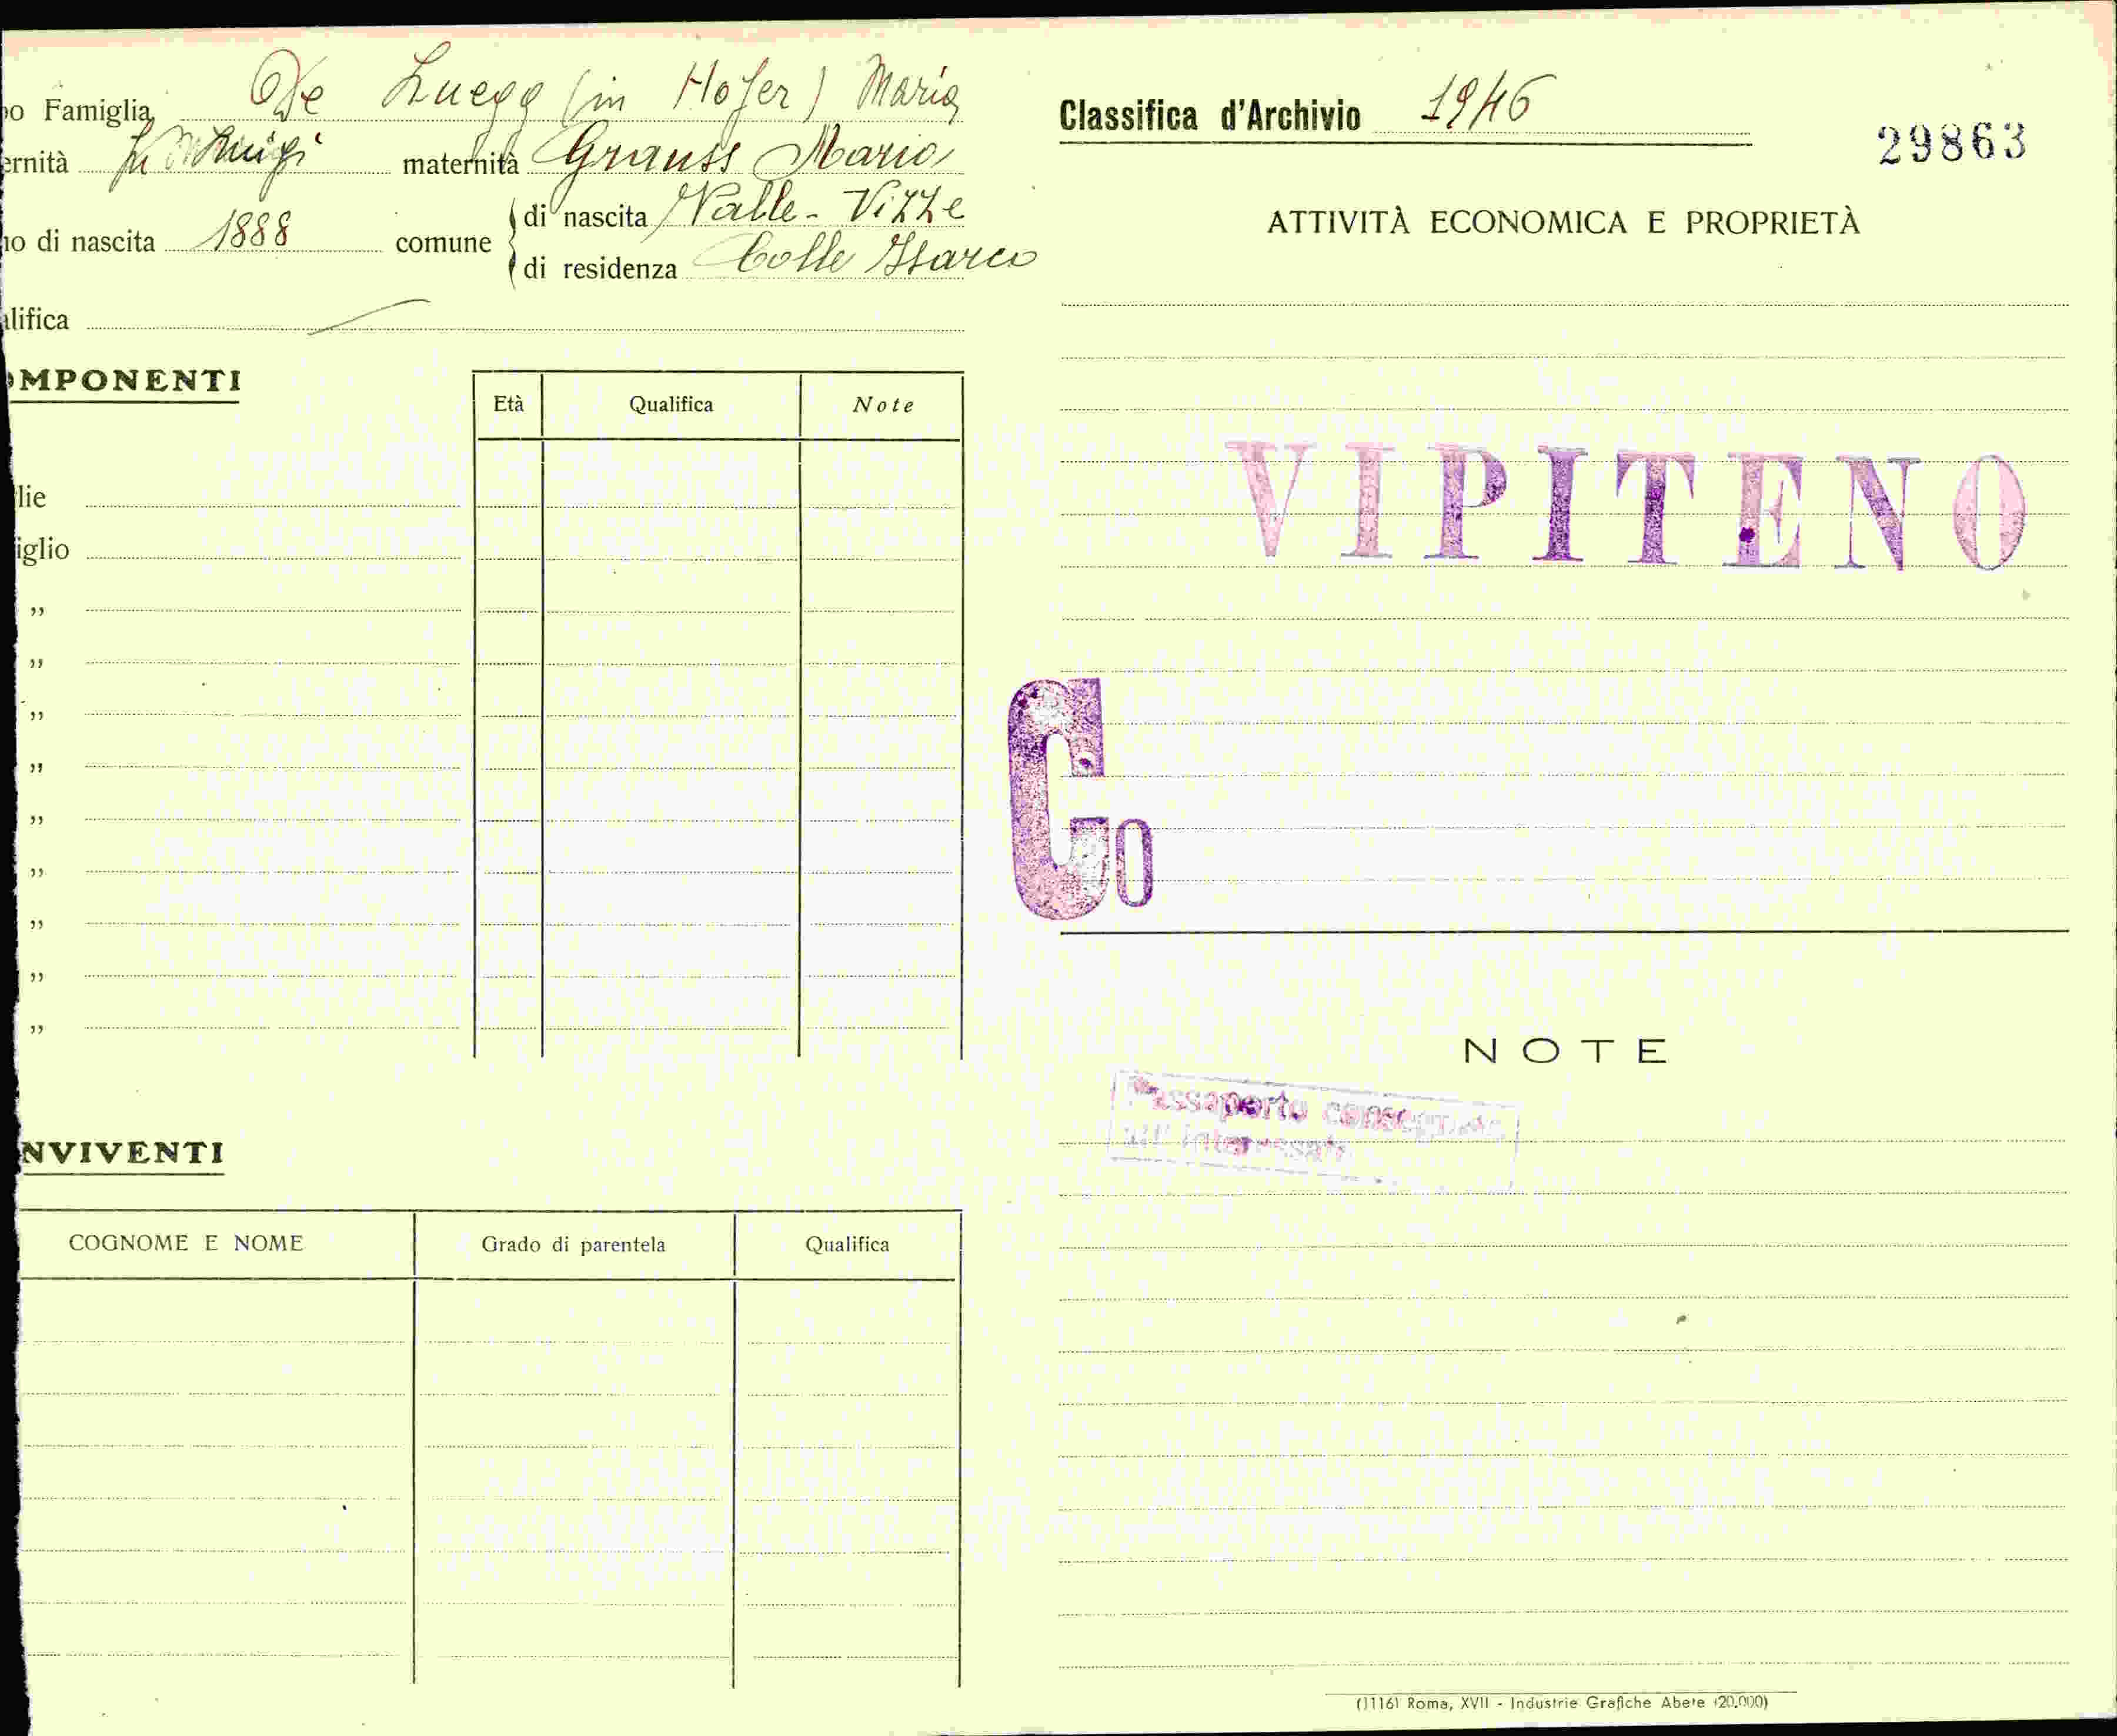 o Famiglia De Luegg (in Hofer) Maria
ernità fu Luigi maternità Grauss Maria
no di nascita 1888 comune
di nascita Valle-Vizze
di residenza Colle Isarco
lifica
OMPONENTI
Età Qualifica Note
lie
iglio
„
„
„
„
„
„
„
„
„
NVIVENTI
COGNOME E NOME Grado di parentela Qualifica
Classifica d'Archivio 1946
29863
ATTIVITÀ ECONOMICA E PROPRIETÀ
VIPITENO
Go
NOTE
Passaporto consegnato
all'interessato
(1116) Roma, XVII - Industrie Grafiche Abete (20.000)